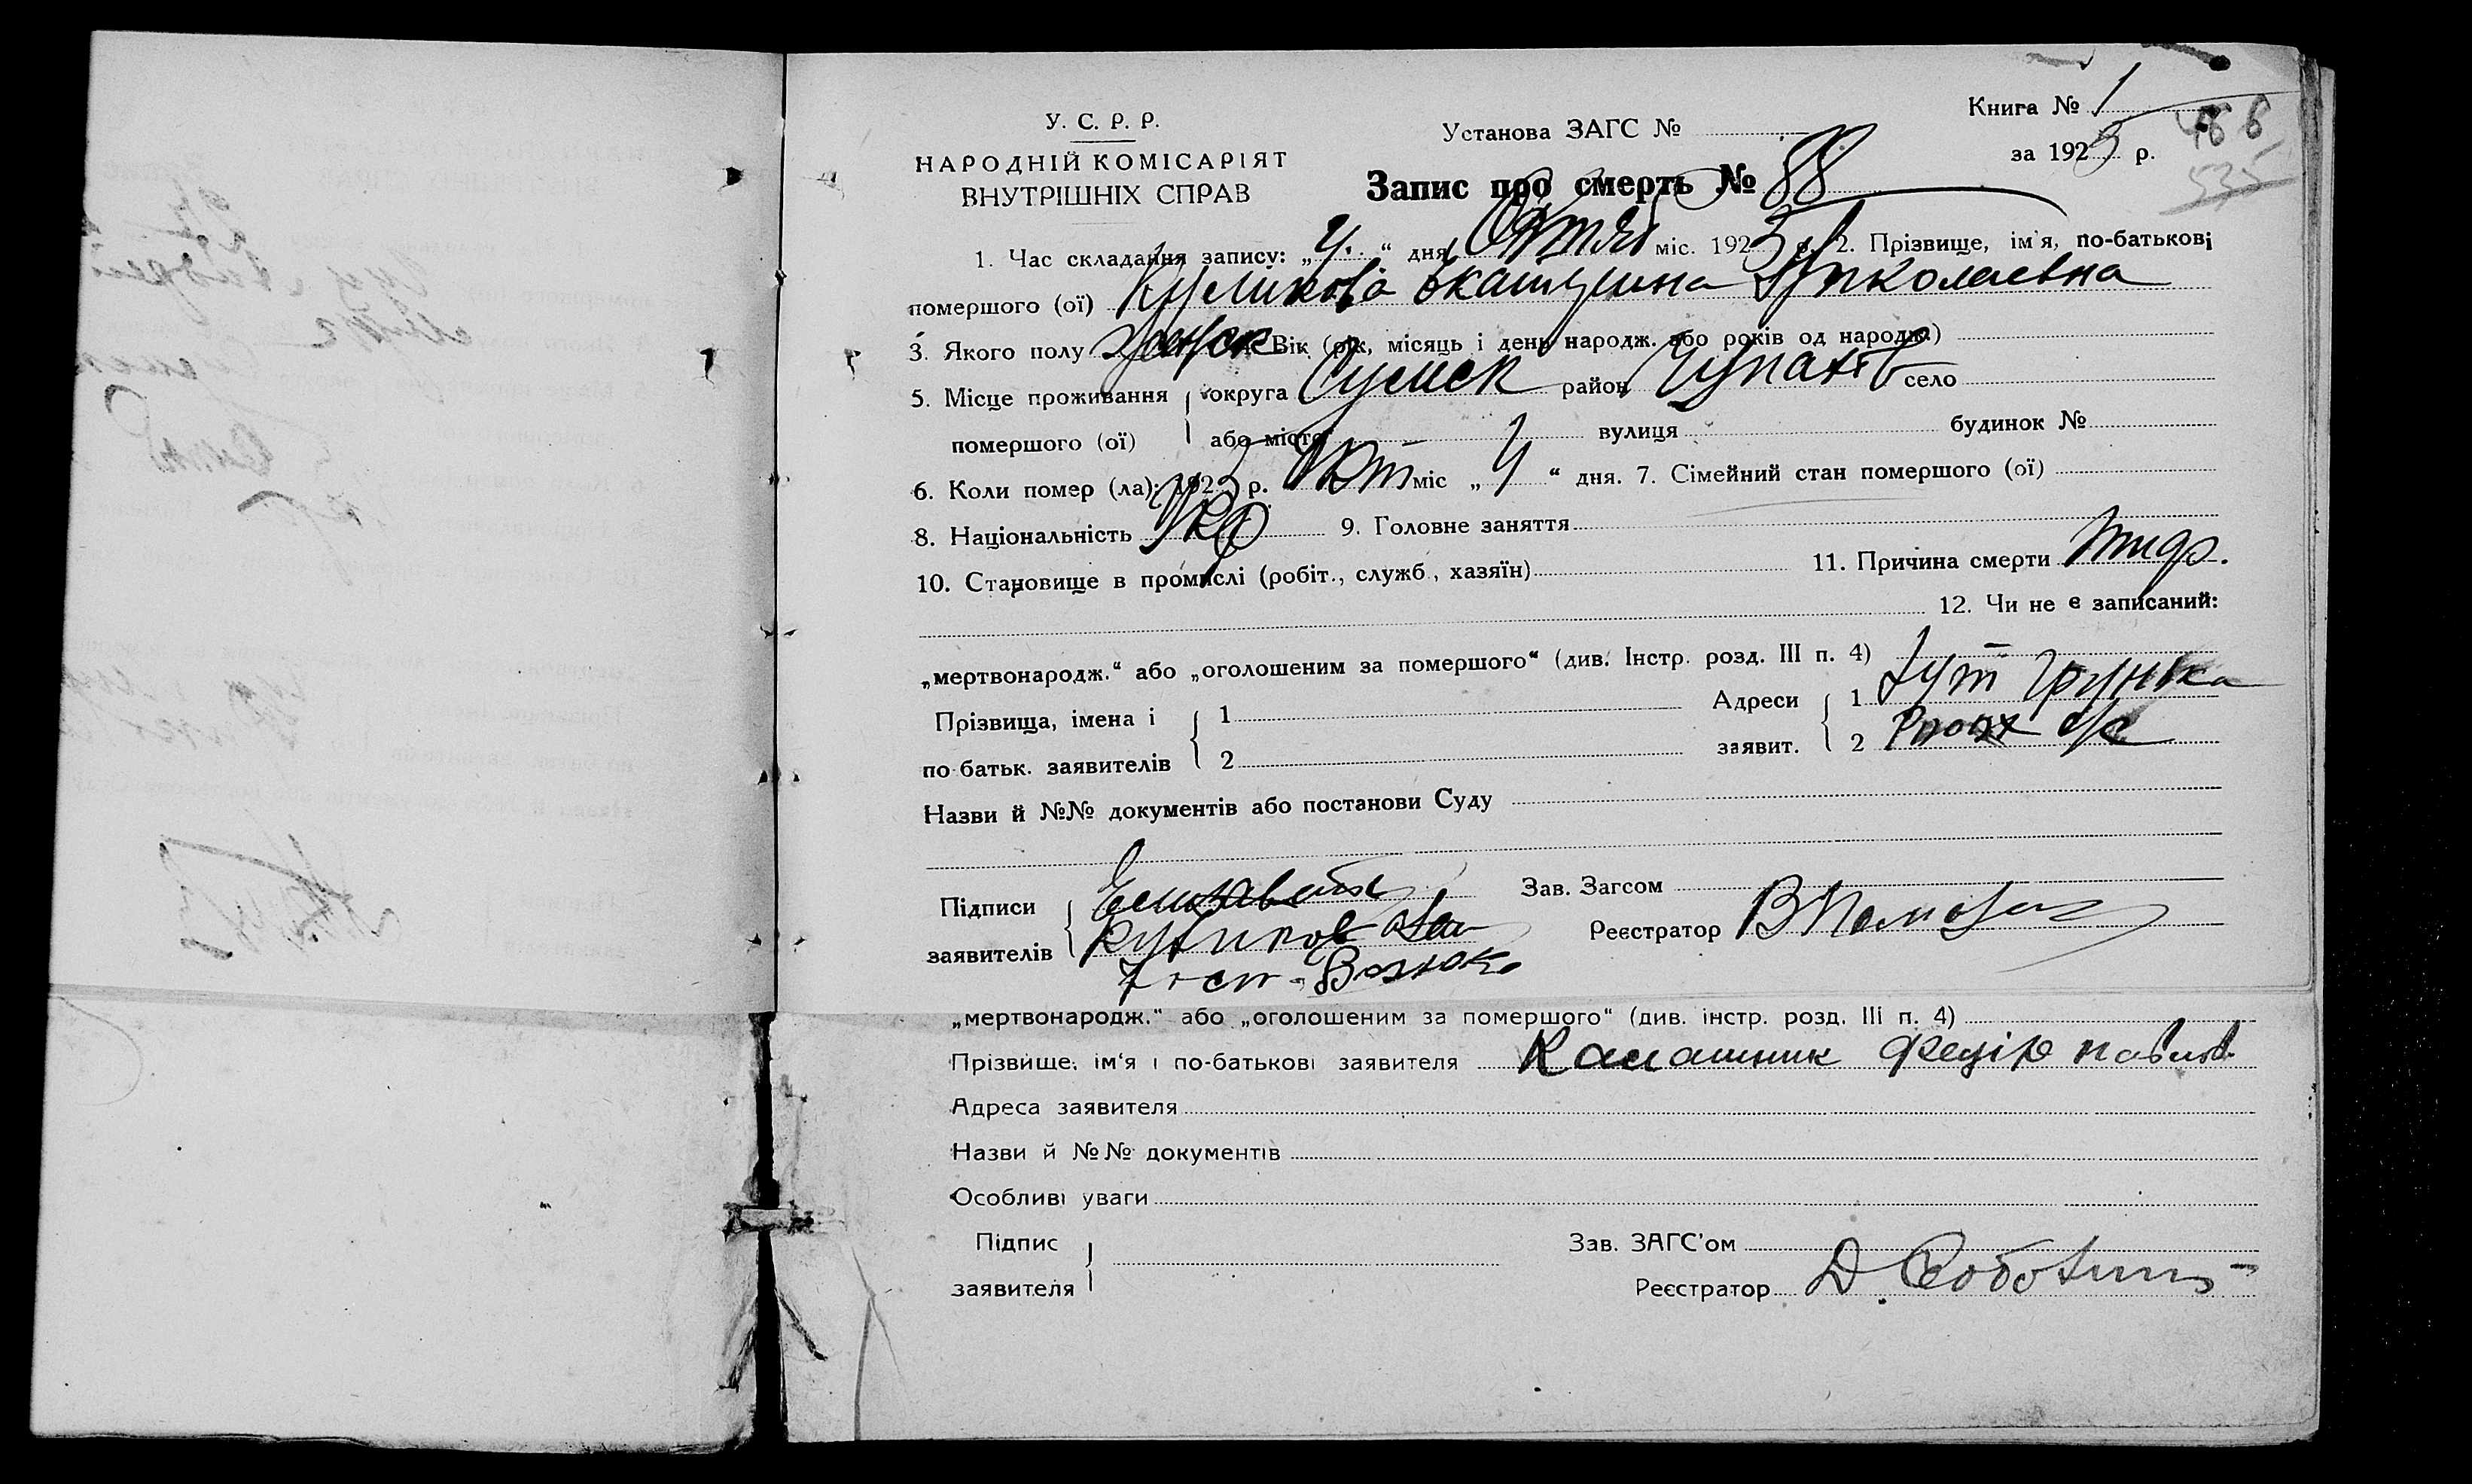 У. С. Р. Р.
НАРОДНІЙ КОМІСАРІЯТ
ВНУТРІШНІХ СПРАВ
Установа ЗАГС №
Запис про смерть № 88
Книга № 1
за 1925 р.
535
1. Час складання запису: „ 4. “ дня Октяб міс. 1925 р. 2. Прізвище, ім'я, по-батькові
помершого (ої) Куликова Екатерина Николаевна
3. Якого полу женск Вік (рік, місяць і день народж. або років од народж.)
5. Місце проживання округа Сумск район село
помершого (ої) або місто вулиця будинок №
6. Коли помер (ла): 1925 р. Окт міс „ 4 “ дня. 7. Сімейний стан помершого (ої)
8. Національність Укр 9. Головне заняття
10. Становище в промислі (робіт., служб., хазяїн) 11. Причина смерти
12. Чи не є записаний:
„мертвонародж.“ або „оголошеним за помершого“ (див. Інстр. розд. III п. 4)
Прізвища, імена і 1 Адреси 1 хут Грунька
по-батьк. заявителів 2 заявит. 2 с/с
Назви й №№ документів або постанови Суду
Підписи Елизавета Зав. Загсом
заявителів Реєстратор
„мертвонародж.“ або „оголошеним за помершого“ (див. інстр. розд. III п. 4)
Прізвище, ім'я і по-батькові заявителя Калашник Федір Павлов.
Адреса заявителя
Назви й №№ документів
Особливі уваги
Підпис Зав. ЗАГС'ом
заявителя Реєстратор Д.